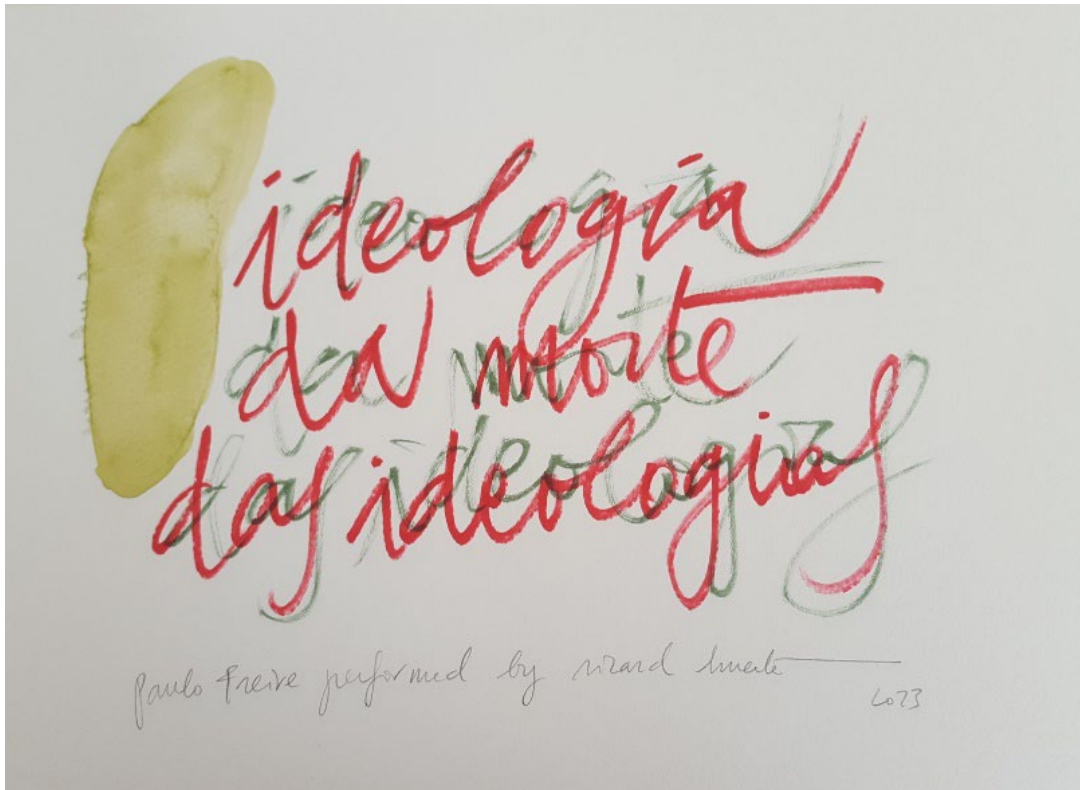 ideologia
da morte
das ideologias
paulo Freire performed by ricard huerta
2023